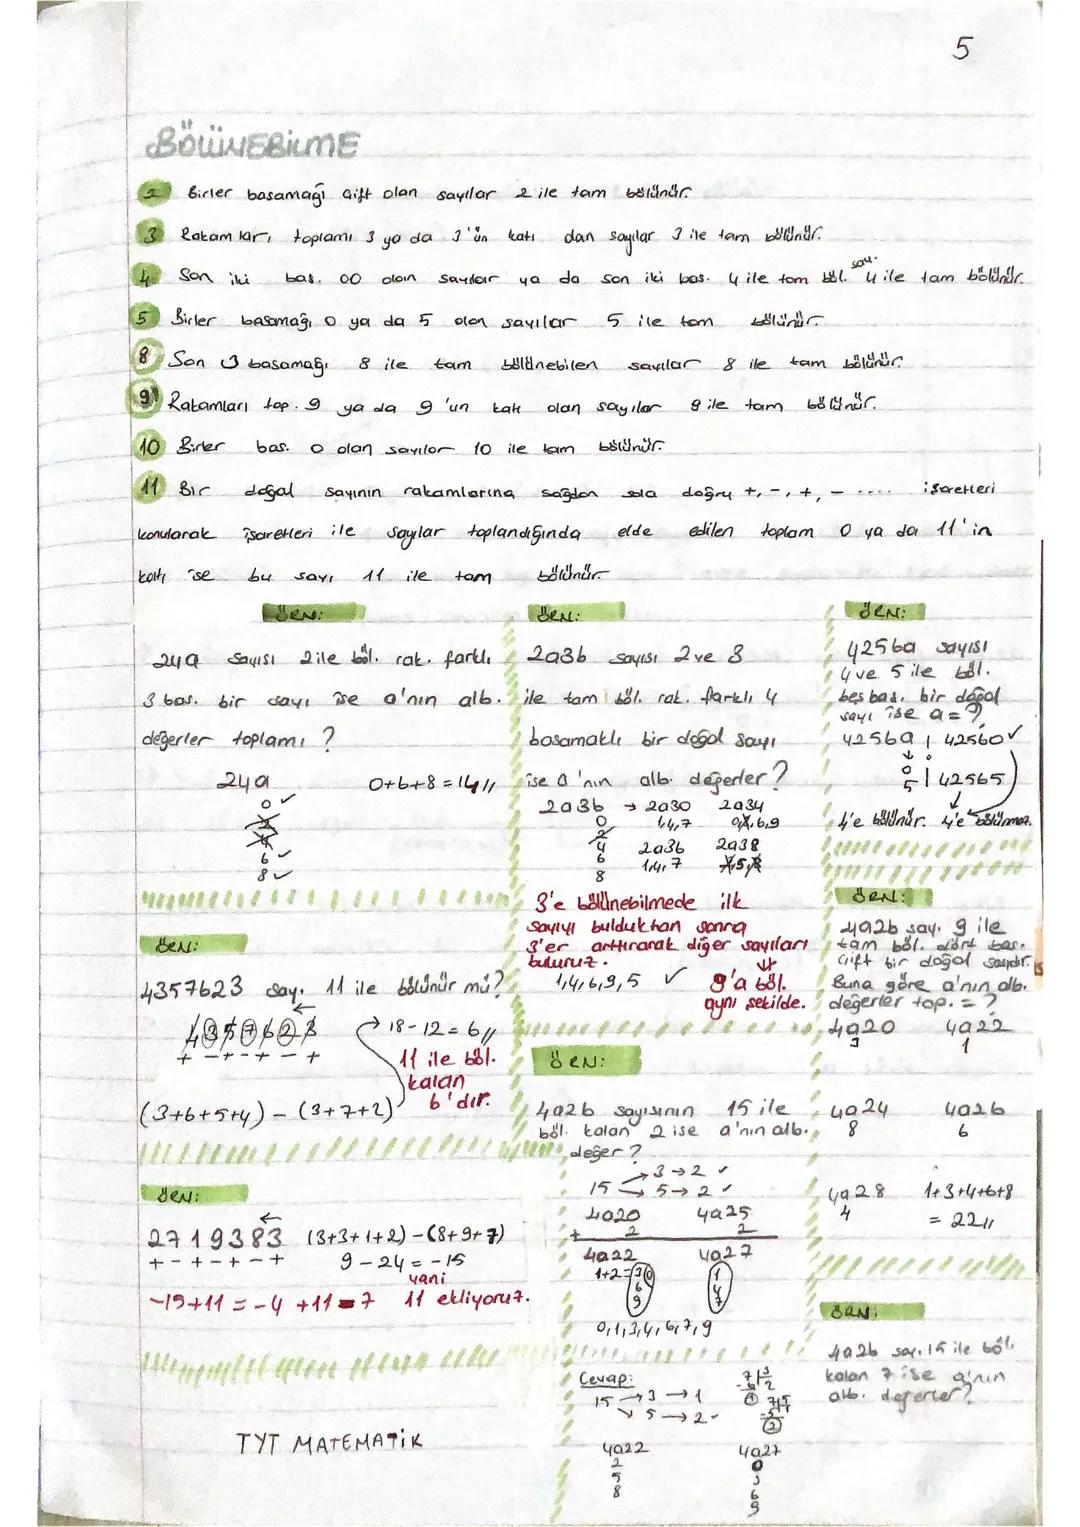 5
BÖLÜNEBİLME
2 Birler basamağı çift olan sayılar 2 ile tam bölünür.
3 Rakamları toplamı 3 ya da 3'ün katı olan sayılar 3 ile tam bölünür.
4 Son iki bas. 00 olan sayılar ya da son iki bas. 4 ile tam böl. say. 4 ile tam bölünür.
5 Birler basamağı 0 ya da 5 olan sayılar 5 ile tam bölünür.
8 Son 3 basamağı 8 ile tam bölünebilen sayılar 8 ile tam bölünür.
9 Rakamları top. 9 ya da 9'un katı olan sayılar 9 ile tam bölünür.
10 Birler bas. 0 olan sayılar 10 ile tam bölünür.
11 Bir doğal sayının rakamlarına sağdan sola doğru +, -, +, - .... işaretleri
konularak işaretleri ile sayılar toplandığında elde edilen toplam 0 ya da 11'in
katı ise bu sayı 11 ile tam bölünür.
ÖRN:
24a sayısı 2 ile böl. rak. farklı
3 bas. bir sayı ise a'nın alb.
değerler toplamı ?
24a 0+6+8=14//
0 ✓
2
4
6 ✓
8 ✓
ÖRN:
4357623 say. 11 ile bölünür mü?
4357623 → 18-12=6//
+ - + - + - +
11 ile böl.
kalan
6'dır.
(3+6+5+4) - (3+7+2)
ÖRN:
2719383 (3+3+1+2)-(8+9+7)
+ - + - + - +
9-24=-15
yani
-15+11=-4 +11=7 11 ekliyoruz.
TYT MATEMATİK
ÖRN:
2a3b sayısı 2 ve 3
ile tam böl. rak. farklı 4
basamaklı bir doğal sayı
ise a'nın alb. değerler?
2a3b → 2a30 2a34
0 1,4,7 0,3,6,9
2
4 2a36 2a38
6 1,4,7 2,5,8
8
3'e bölünebilmede ilk
sayıyı bulduktan sonra
3'er arttırarak diğer sayıları
buluruz.
1,4,6,9,5 ✓ 9'a böl.
aynı şekilde.
ÖRN:
4a2b sayısının 15 ile
böl. kalan 2 ise a'nın alb.
değer?
15 → 3 → 2 ✓
→ 5 → 2 ✓
4a20 4a25
+ 2 2
4a22 4a27
1+2=3 0 1
6 4
9 7
0,1,3,4,6,7,9
Cevap:
15 → 3 → 1
→ 5 → 2
4a22 4a27
2 0
5 3
8 6
9
ÖRN:
4256a sayısı
4 ve 5 ile böl.
beş bas. bir doğal
sayı ise a=?
4256a | 42560 ✓
0
5 | 42565
4'e bölünür. 4'e bölünmez.
ÖRN:
4a2b say. 9 ile
tam böl. dört bas.
çift bir doğal sayıdır.
Buna göre a'nın alb.
değerler top. = ?
4a20 4a22
3 1
4a24 4a26
8 6
4a28 1+3+4+6+8
4 = 22//
ÖRN:
4a2b say. 15 ile böl.
kalan 7 ise a'nın
alb. değerler?